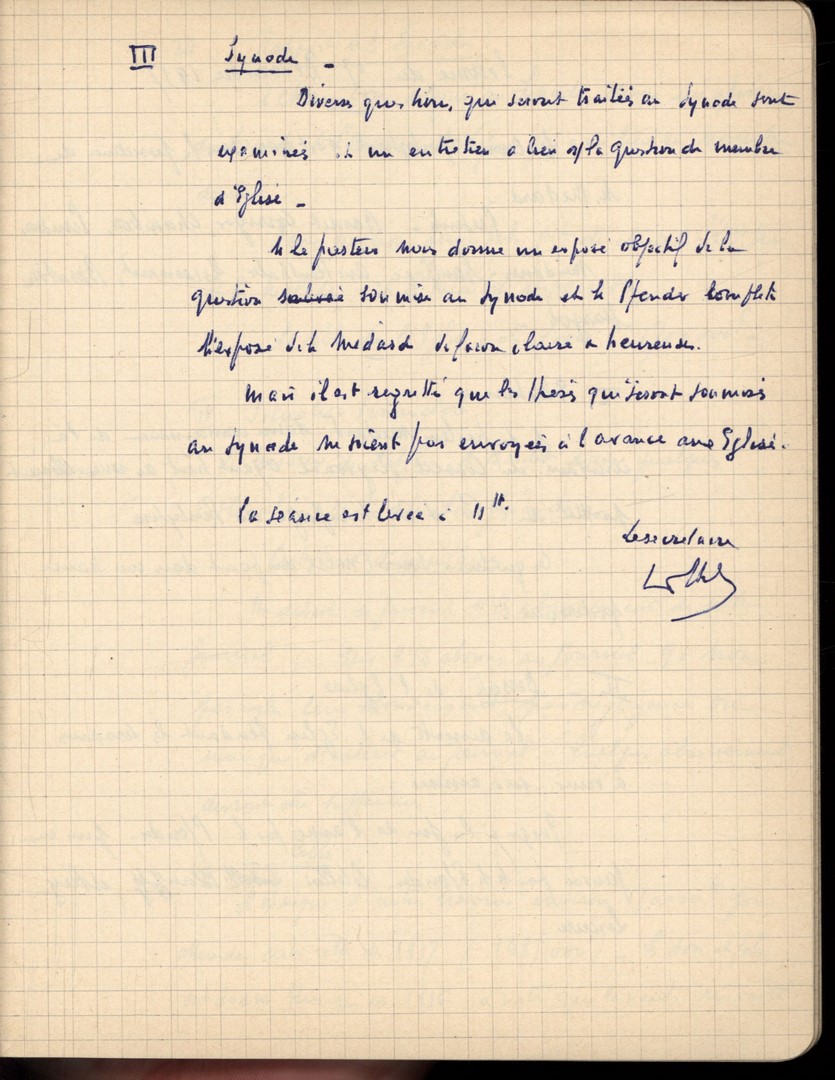 III Synode -
Diverses questions, qui seront traitées au Synode sont
examinés et un entretien a lieu s/ la question de membre
d'Eglise -
M le pasteur nous donne un exposé objectif de la
question soumise au Synode et M Pfender complète
l'exposé de M Médard de façon claire et heureuse.
Mais il est regretté que les thèses qui seront soumises
au Synode ne soient pas envoyées à l'avance aux Eglises.
La séance est levée à 11 H.
Le secrétaire